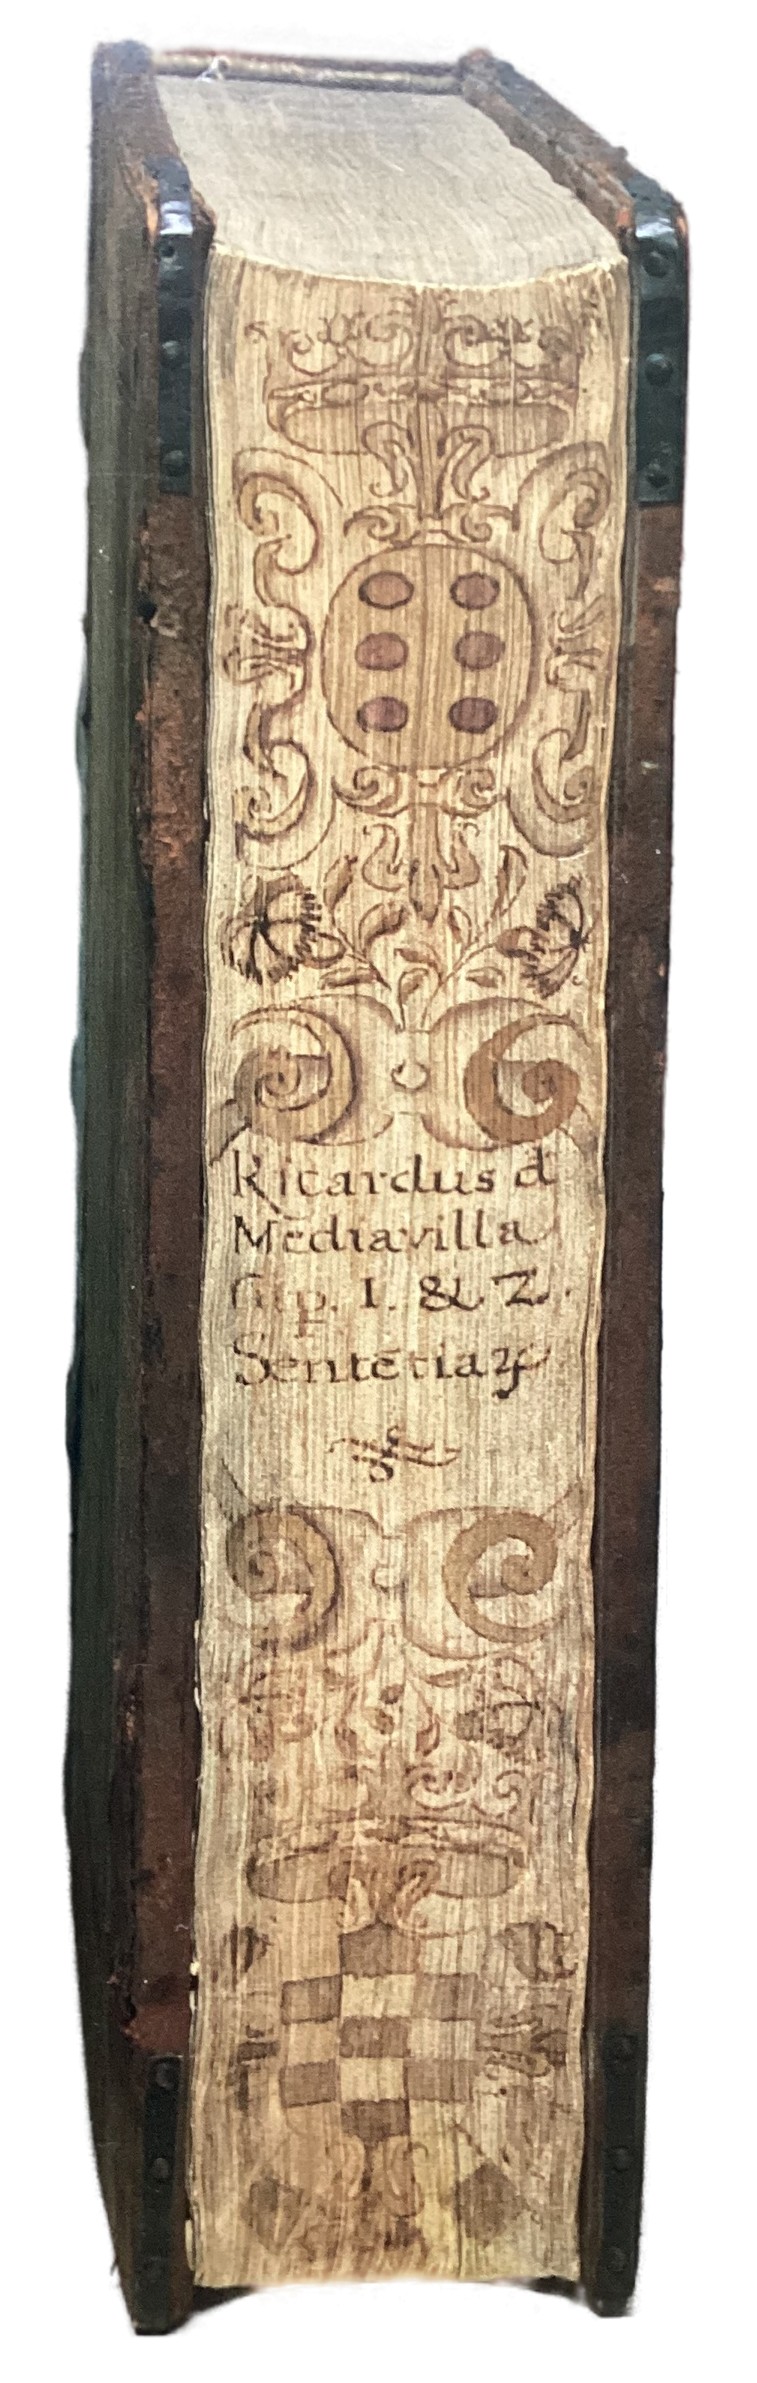 Ricardus d̄
Mēdiavilla
sup. I. & 2.
Sentētiaꝝ